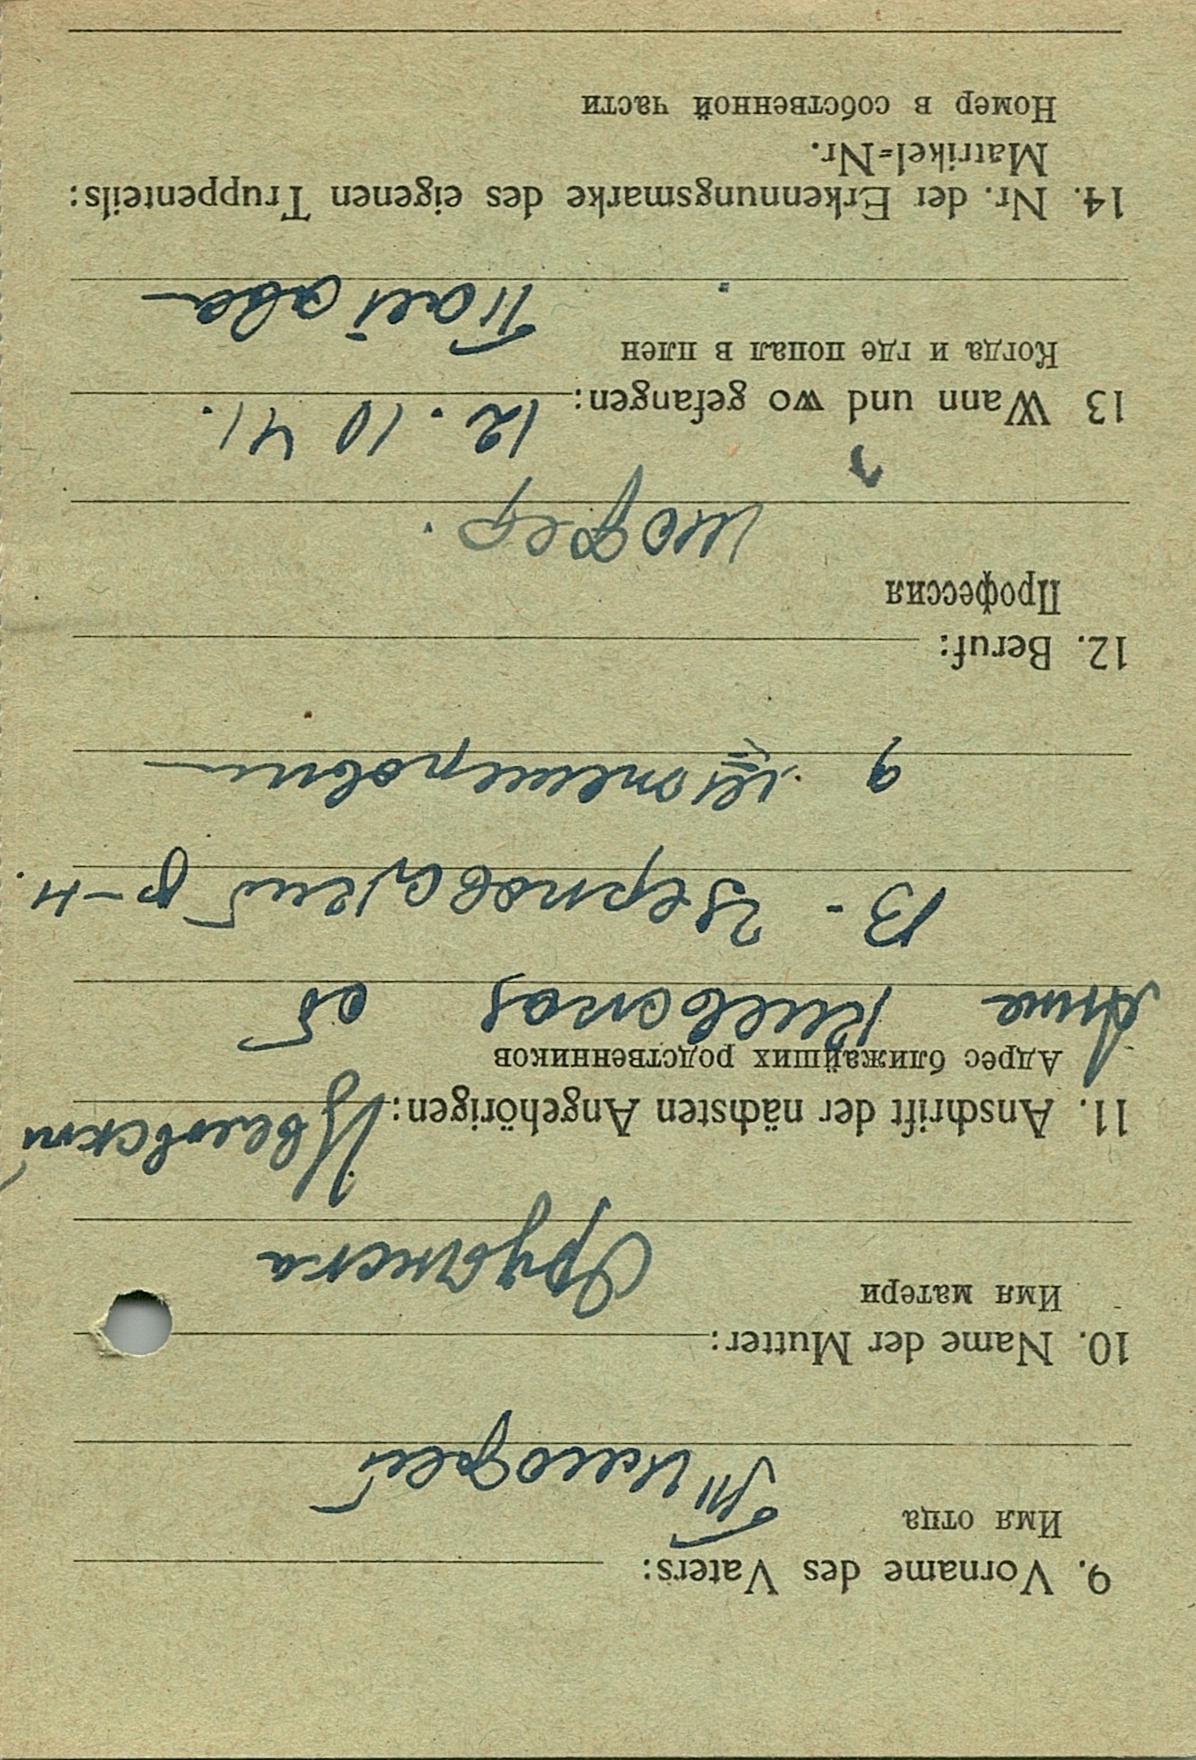 9. Vorname des Vaters:
Имя отца
Тимофей
10. Name der Mutter:
Имя матери
11. Anschrift der nächsten Angehörigen:
Адрес ближайших родственников
Киевская об
В - р-н.
12. Beruf:
Профессия
шофер.
13 Wann und wo gefangen: 12.10 41.
Когда и где попал в плен
Палтава
14. Nr. der Erkennungsmarke des eigenen Truppenteils:
Matrikel=Nr.
Номер в собственной части